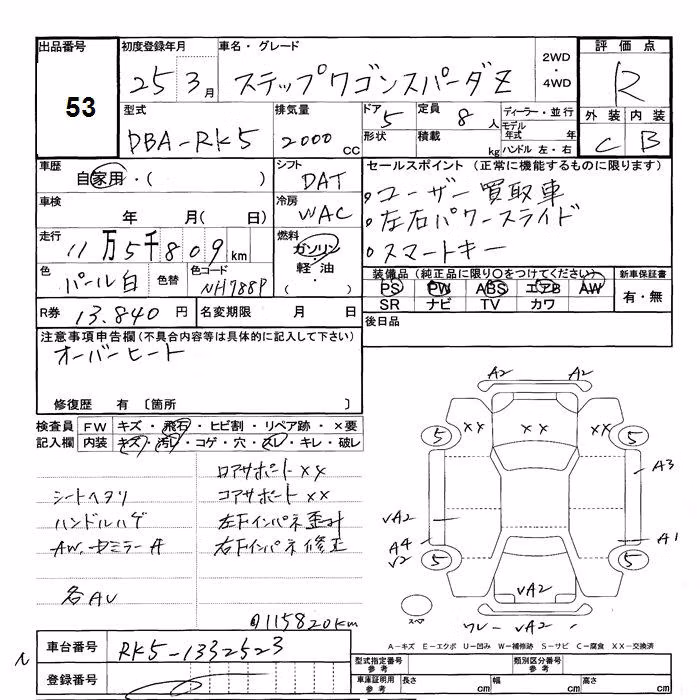 出品番号
53
初度登録年月
25 3月
車名・グレード
ステップワゴンスパーダZ
2WD
・
4WD
評価点
R
外装 内装
C B
型式
DBA-RK5
排気量
2000 CC
ドア 5
形状
定員 8 人
積載 kg
ディーラー・並行
モデル年式 年
ハンドル 左・右
車歴
自家用・( )
シフト
DAT
セールスポイント (正常に機能するものに限ります)
・ユーザー買取車
・左右パワースライド
・スマートキー
車検
年 月( 日)
冷房
WAC
走行
11万5千809km
燃料
ガソリン
・
軽油
・
( )
色
パール白
色替
色コード
NH788P
装備品(純正品に限り○をつけてください)
PS PW ABS エアB AW
SR ナビ TV カワ
新車保証書
有・無
R券 13.840円
名変期限 月 日
後日品
注意事項申告欄(不具合内容等は具体的に記入して下さい)
オーバーヒート
修復歴 有 〔箇所 〕
検査員
記入欄
FW キズ・飛石・ヒビ割・リペア跡・×要
内装 キズ・汚レ・コゲ・穴・スレ・キレ・破レ
ロアサポートXX
シートヘタリ コアサポートXX
ハンドルハゲ 左Fインパネ歪
右Fインパネ修正
各AU
115820km
A2 A2
XX XX
5 5
A3
VA2
A4
V2
A1
5 5
VA2
スペア
ワレ VA2
A-キズ E-エクボ U-凹み W-補修跡 S-サビ C-腐食 XX-交換済
車台番号 RK5-1332523
登録番号
型式指定番号
参考
類別区分番号
参考
車庫証明用
参考
長さ cm 幅 cm 高さ cm